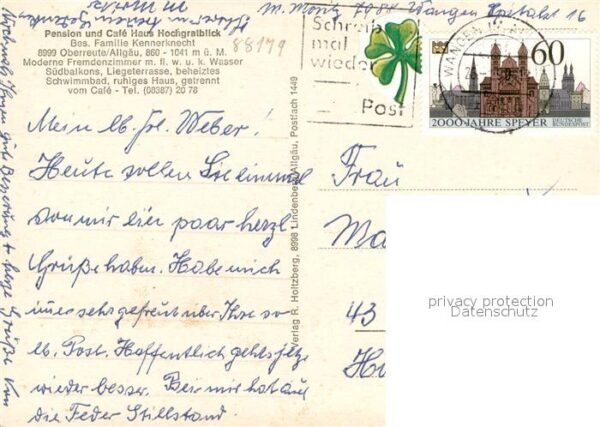 M. Moritz 7988 Wangen Spitalst 16
Pension und Café Haus Hochgratblick
Bes. Familie Kennerknecht
8999 Oberreute/Allgäu, 860 - 1041 m ü. M.
Moderne Fremdenzimmer m. fl. w. u. k. Wasser
Südbalkons, Liegeterrasse, beheiztes
Schwimmbad, ruhiges Haus, getrennt
vom Café - Tel. (08387) 20 78
88179
Schreib
mal
wieder
Post
WANGEN
60
2000 JAHRE SPEYER
DEUTSCHE
BUNDESPOST
Mein lb. Frl. Weber!
Heute sollen Sie einmal
von mir ein paar herzl
Grüße haben. Habe mich
immer sehr gefreut über Ihre so
lb. Post. Hoffentlich gehts jetzt
wieder besser. Bei mir hat auch
die Feder Stillstand.
Nochmals Ihnen gute Besserung + herzl Grüße von
M Moritz
Verlag R. Holtzberg, 8998 Lindenberg/Allgäu, Postfach 1449
Frau
Ma
43
Hu
privacy protection
Datenschutz